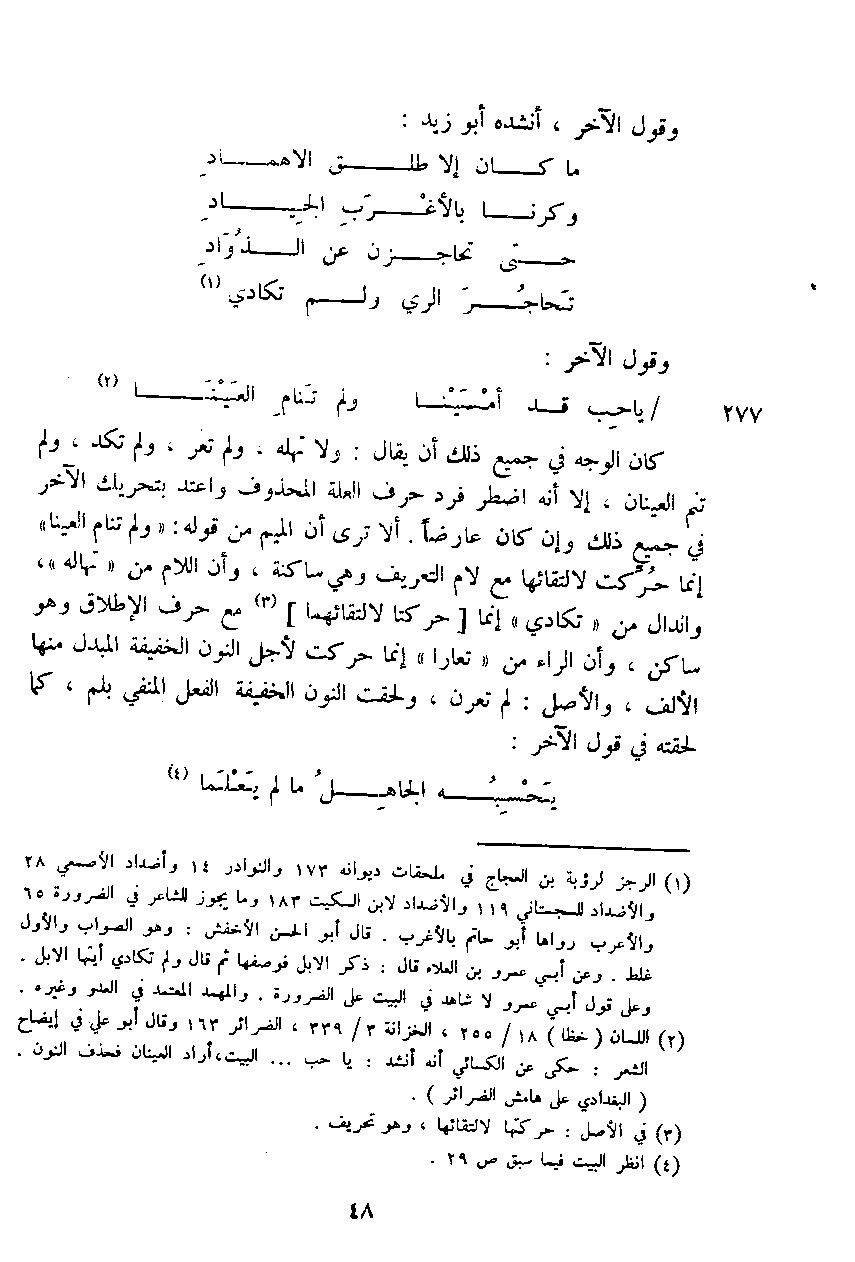 وقول الآخر ، أنشده أبو زيد :
ما كــان إلا طلــق الاهمــادِ
وكرنــا بالأغْــرَبِ الجِيــادِ
حــتى تحاجــزن عن الــذُوَادِ
تَحاجُــرَ الري ولــم تكادي (١)
وقول الآخر :
٢٧٧ / ياحِب قــد أمْسَيْنــا ولم تَنامِ العَيْنَــا (٢)
كان الوجه في جميع ذلك أن يقال : ولا تهله ، ولم تعر ، ولم تكد ، ولم
تنم العينان ، إلا أنه اضطر فرد حرف العلة المحذوف واعتد بتحريك الآخر
في جميع ذلك وإن كان عارضاً . ألا ترى أن الميم من قوله : « ولم تنام العينا»
إنما حُرِّكت لالتقائها مع لام التعريف وهي ساكنة ، وأن اللام من « تهاله »،
واندال من « تكادي » إنما [ حركتا لالتقائهما ] (٣) مع حرف الإطلاق وهو
ساكن ، وأن الراء من « تعارا » إنما حركت لأجل النون الخفيفة المبدل منها
الألف ، والأصل : لم تعرن ، ولحقت النون الخفيفة الفعل المنفي بلم ، كما
لحقته في قول الآخر :
يَحْسِبُــه الجاهِــلُ ما لم يَعْلَما (٤)
(١) الرجز لرؤبة بن العجاج في ملحقات ديوانه ١٧٣ والنوادر ١٤ وأضداد الأصمعي ٢٨
والأضداد للسجستاني ١١٩ والأضداد لابن السكيت ١٨٣ وما يجوز للشاعر في الضرورة ٦٥
والأعرب رواها أبو حاتم بالأغرب . قال أبو الحسن الأخفش : وهو الصواب والأول
غلط . وعن أبــي عمرو بن العلاء قال : ذكر الابل فوصفها ثم قال ولم تكادي أيتها الابل .
وعلى قول أبــي عمرو لا شاهد في البيت على الضرورة . والمهمد المعتمد في العدو وغيره .
(٢) اللسان ( خظا ) ١٨ / ٢٥٥ ، الخزانة ٣ / ٣٣٩ ، الضرائر ١٦٣ وقال أبو علي في إيضاح
الشعر : حكى عن الكسائي أنه أنشد : يا حب ... البيت،أراد العينان فحذف النون .
( البغدادي على هامش الضرائر ) .
(٣) في الأصل : حركتها لالتقائها ، وهو تحريف .
(٤) انظر البيت فيما سبق ص ٢٩ .
٤٨